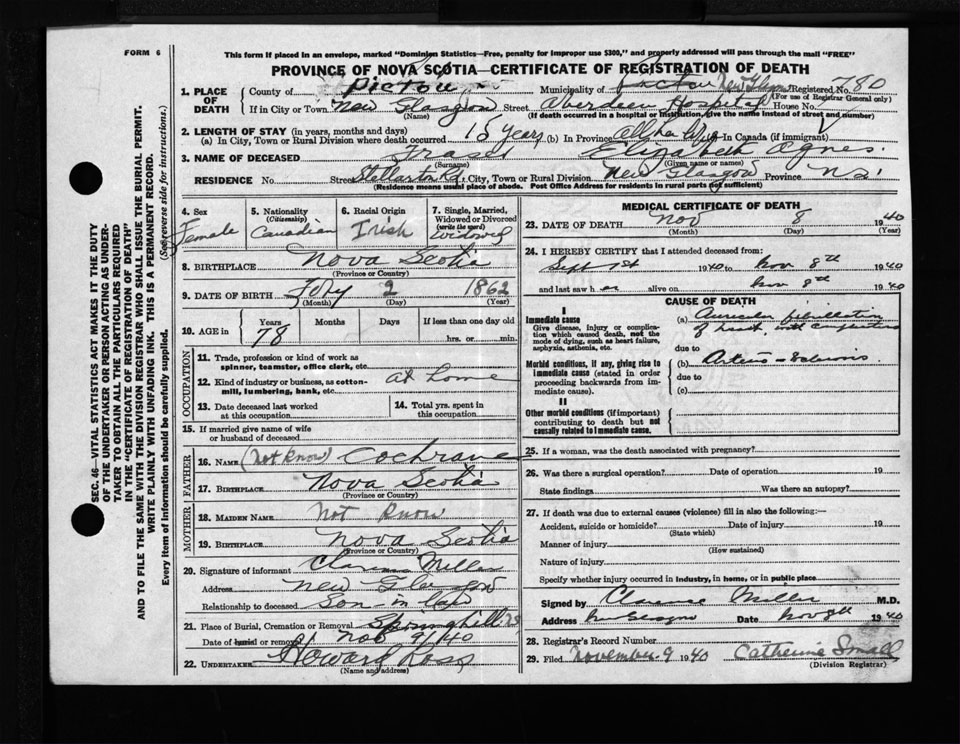 FORM 6
This form if placed in an envelope, marked "Dominion Statistics—Free, penalty for improper use $300," and properly addressed will pass through the mail "FREE"
PROVINCE OF NOVA SCOTIA—CERTIFICATE OF REGISTRATION OF DEATH
1. PLACE OF DEATH
County of Pictou Municipality of Pictou New Glasgow Registered No. 780
(For use of Registrar General only)
If in City or Town New Glasgow Street Aberdeen Hospital House No.
(Name) (If death occurred in a hospital or institution, give the name instead of street and number)
2. LENGTH OF STAY (in years, months and days)
(a) In City, Town or Rural Division where death occurred 15 years (b) In Province all her life In Canada (if immigrant)
3. NAME OF DECEASED Fraser Elizabeth Agnes
(Surname) (Given name or names)
RESIDENCE No. Street Stellarton Rd. City, Town or Rural Division New Glasgow Province N.S.
(Residence means usual place of abode. Post Office Address for residents in rural parts not sufficient)
4. Sex Female
5. Nationality (Citizenship) Canadian
6. Racial Origin Irish
7. Single, Married, Widowed or Divorced (write the word) Widowed
8. BIRTHPLACE Nova Scotia
(Province or Country)
9. DATE OF BIRTH 2 1862
(Month) (Day) (Year)
10. AGE in Years Months Days If less than one day old
78 hrs. or min.
OCCUPATION
11. Trade, profession or kind of work as spinner, teamster, office clerk, etc.
12. Kind of industry or business, as cotton-mill, lumbering, bank, etc. at home
13. Date deceased last worked at this occupation
14. Total yrs. spent in this occupation
15. If married give name of wife or husband of deceased
FATHER
16. NAME (not know) Cochrane
17. BIRTHPLACE Nova Scotia
(Province or Country)
MOTHER
18. MAIDEN NAME Not know
19. BIRTHPLACE Nova Scotia
(Province or Country)
20. Signature of informant Clarence Miller
Address New Glasgow
Relationship to deceased Son-in law
21. Place of Burial, Cremation or Removal Springhill NS
Date of burial or removal Nov 9/40
22. UNDERTAKER Howard Ross
(Name and address)
MEDICAL CERTIFICATE OF DEATH
23. DATE OF DEATH Nov 8 1940
(Month) (Day) (Year)
24. I HEREBY CERTIFY that I attended deceased from:
Sept 1st 1940 to Nov 8th 1940
and last saw her alive on Nov 8th 1940
CAUSE OF DEATH
I
Immediate cause
Give disease, injury or complication which caused death, not the mode of dying, such as heart failure, asphyxia, asthenia, etc.
(a) Auricular fibrillation of heart, with
due to
Morbid conditions, if any, giving rise to immediate cause (stated in order proceeding backwards from immediate cause).
(b) Arterio-sclerosis
due to
(c)
II
Other morbid conditions (if important) contributing to death but not causally related to immediate cause.
25. If a woman, was the death associated with pregnancy?
26. Was there a surgical operation? Date of operation 19
State findings Was there an autopsy?
27. If death was due to external causes (violence) fill in also the following:—
Accident, suicide or homicide? Date of injury 19
(State which)
Manner of injury
(How sustained)
Nature of injury
Specify whether injury occurred in industry, in home, or in public place
Signed by Clarence Miller M.D.
Address New Glasgow Date Nov 8th 1940
28. Registrar's Record Number
29. Filed November 9 1940 Catherine Small
(Division Registrar)
SEC. 46—VITAL STATISTICS ACT MAKES IT THE DUTY
OF THE UNDERTAKER OR PERSON ACTING AS UNDER-
TAKER TO OBTAIN ALL THE PARTICULARS REQUIRED
IN THE "CERTIFICATE OF REGISTRATION OF DEATH"
AND TO FILE THE SAME WITH THE DIVISION REGISTRAR WHO SHALL ISSUE THE BURIAL PERMIT.
WRITE PLAINLY WITH UNFADING INK. THIS IS A PERMANENT RECORD.
Every item of Information should be carefully supplied. (See reverse side for instructions.)